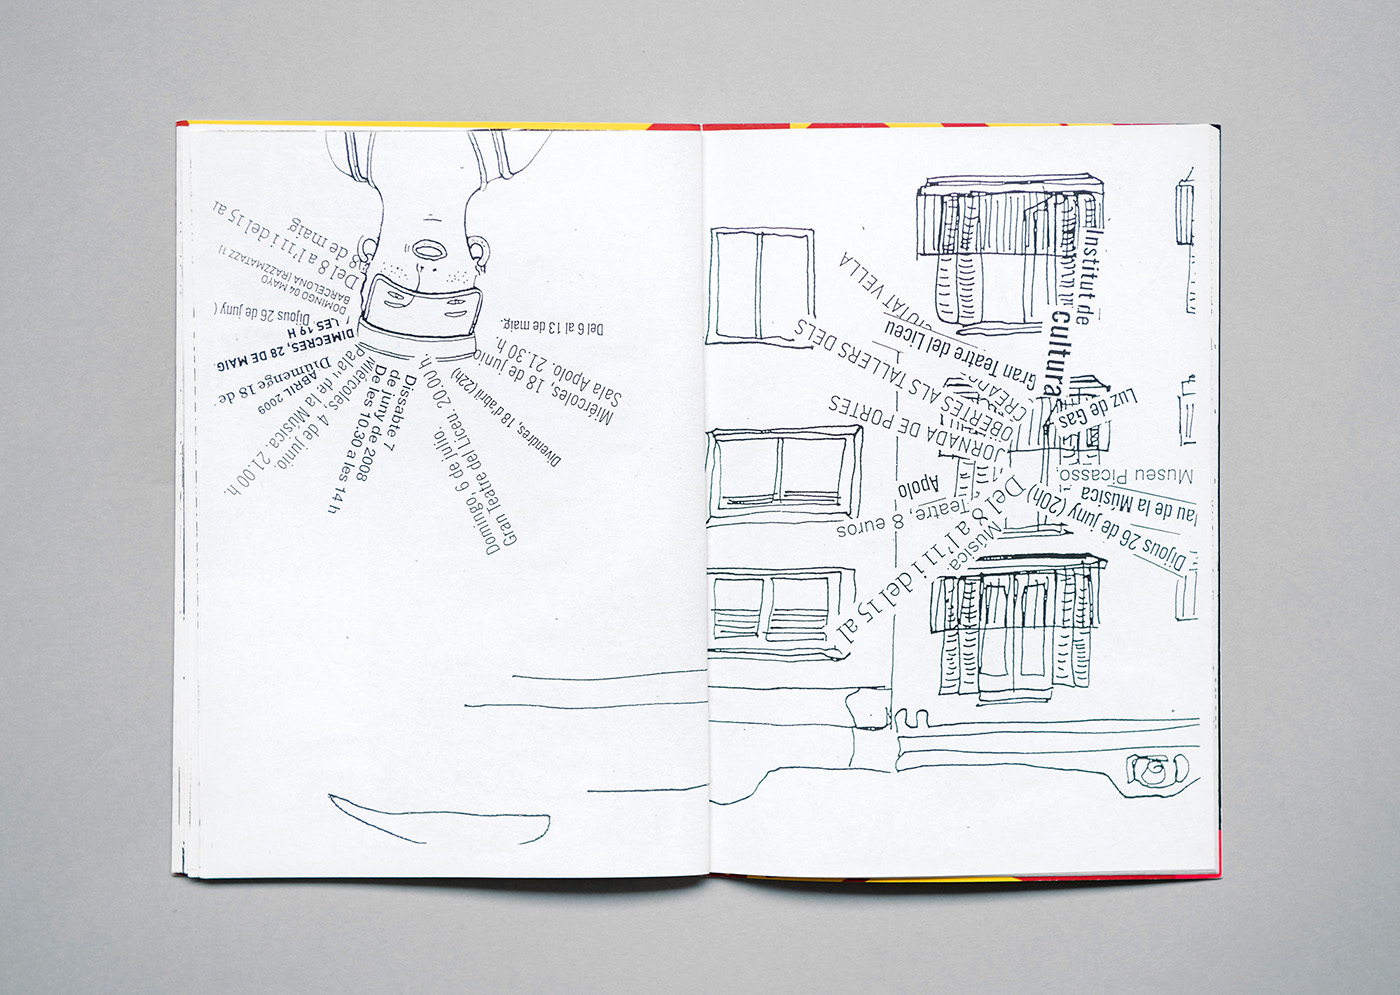 Del 8 a l'11 i del 15 al
18 de maig
DOMINGO 04 MAYO
BARCELONA (RAZZMATAZZ 1)
Dijous 26 de juny (
DIMECRES, 28 DE MAIG.
/ LES 19 H
Diumenge 18 de
ABRIL 2009
Miércoles, 4 de junio.
Palau de la Música. 21.00 h.
Dissabte 7
de juny de 2008
De les 10:30 a les 14 h
Domingo, 6 de julio.
Gran Teatre del Liceu. 20.00 h.
Divendres, 18 d'abril (22h)
Miércoles, 18 de junio.
Sala Apolo. 21.30 h.
Del 6 al 13 de maig.
CIUTAT VELLA
Gran Teatre del Liceu
JORNADA DE PORTES
OBERTES ALS TALLERS DELS
Institut de
cultura
Luz de Gas
Museu Picasso.
lau de la Música
Dijous 26 de juny (20h)
Apolo
Teatre, 8 euros
Música.
Del 8 a l'11 i del 15 al